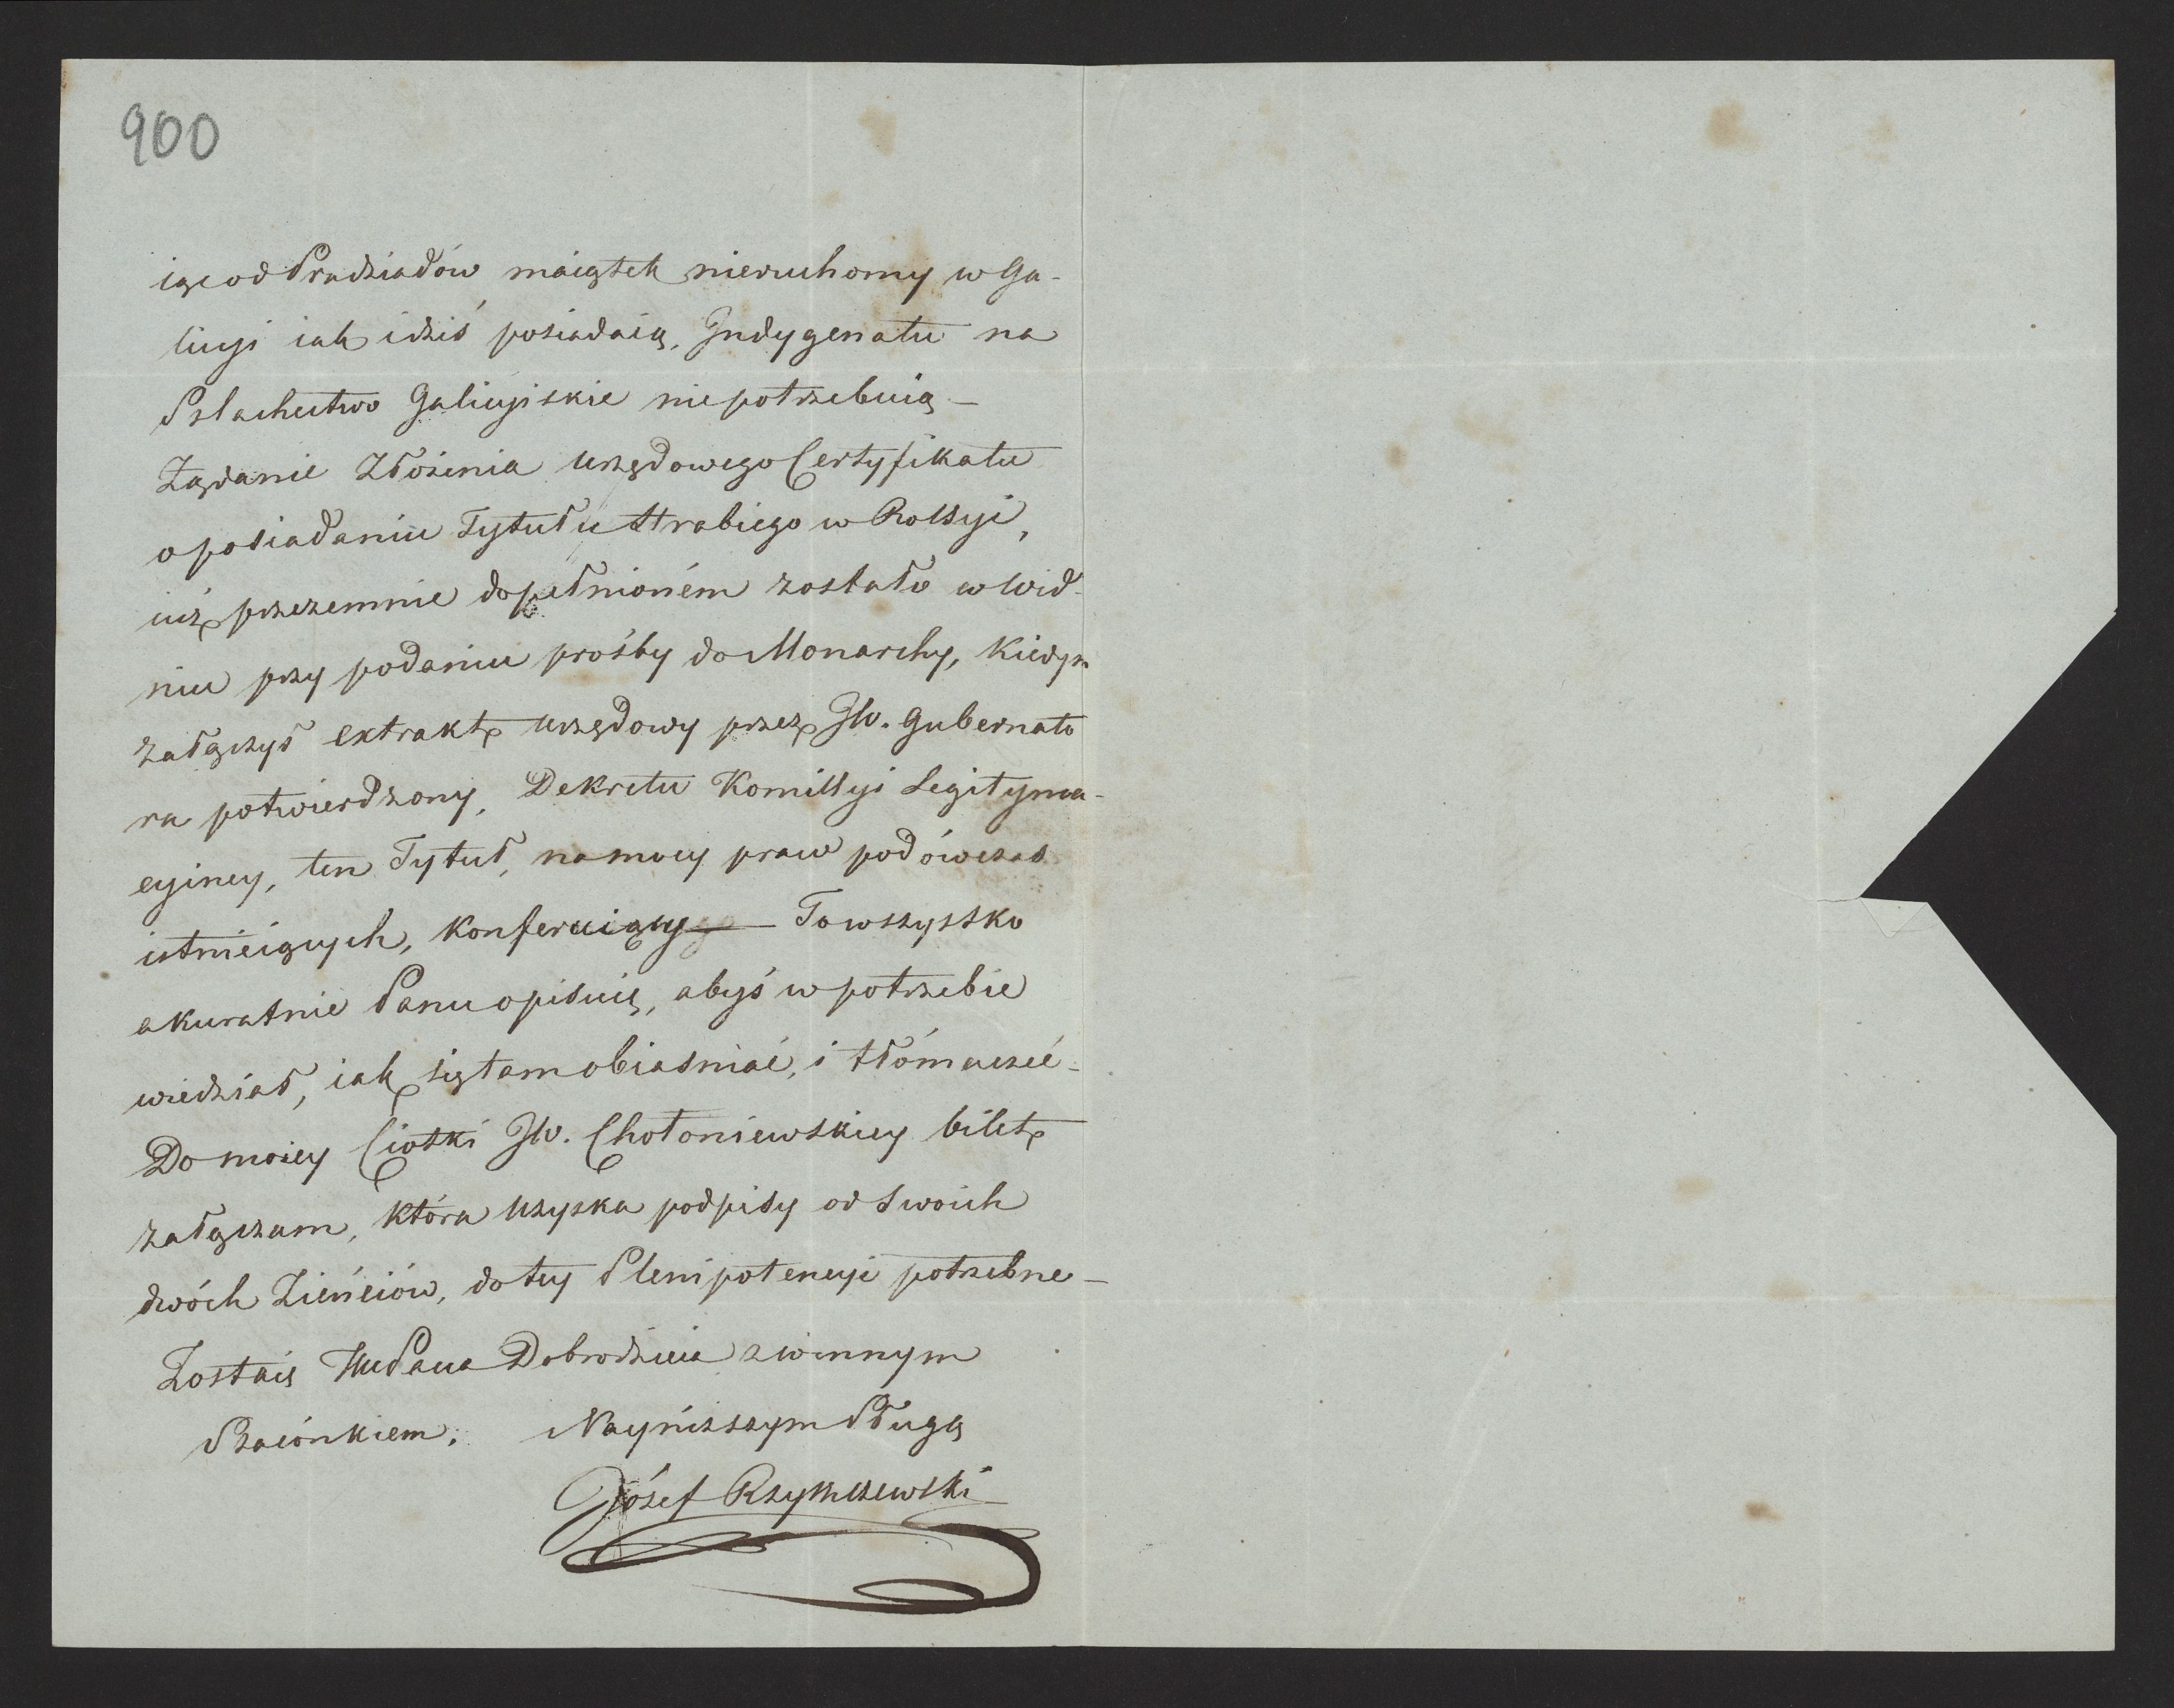 900
iąc od Pradziadów maiątek nieruchomy w Ga-
licyi iak i dziś posiadaią, Indygenatu na
Szlachectwo Galicyiskie nie potrzebuią —
Żądanie Złożenia Urzędowego Certyfikatu
o posiadaniu Tytułu Hrabiego w Rossyi,
iuż przezemnie dopełnioném zostało w Wid-
niu przy podaniu prośby do Monarchy, kiedym
załączył extrakt Urzędowy przez JW. Gubernato
ra potwierdzony, Dekretu Komissyi Legityma-
cyiney, ten Tytuł, na mocy praw podówczas
istnieiących, konferuiący — To wszystko
akuratnie Panu opisuię, abyś w potrzebie
wiedział, iak się tam obiasniać, i tłómaczéć -
Do moiey Ciotki JW. Chołoniewskiey bilet
załączam, która uzyska podpisy od swoich
dwóch Zięciów, do tey Plenipotencyi potrzebne —
Zostaię Pana Dobrodzieia z winnym
Szacónkiem, Nayniższym Sługą
Józef Rzyszczewski